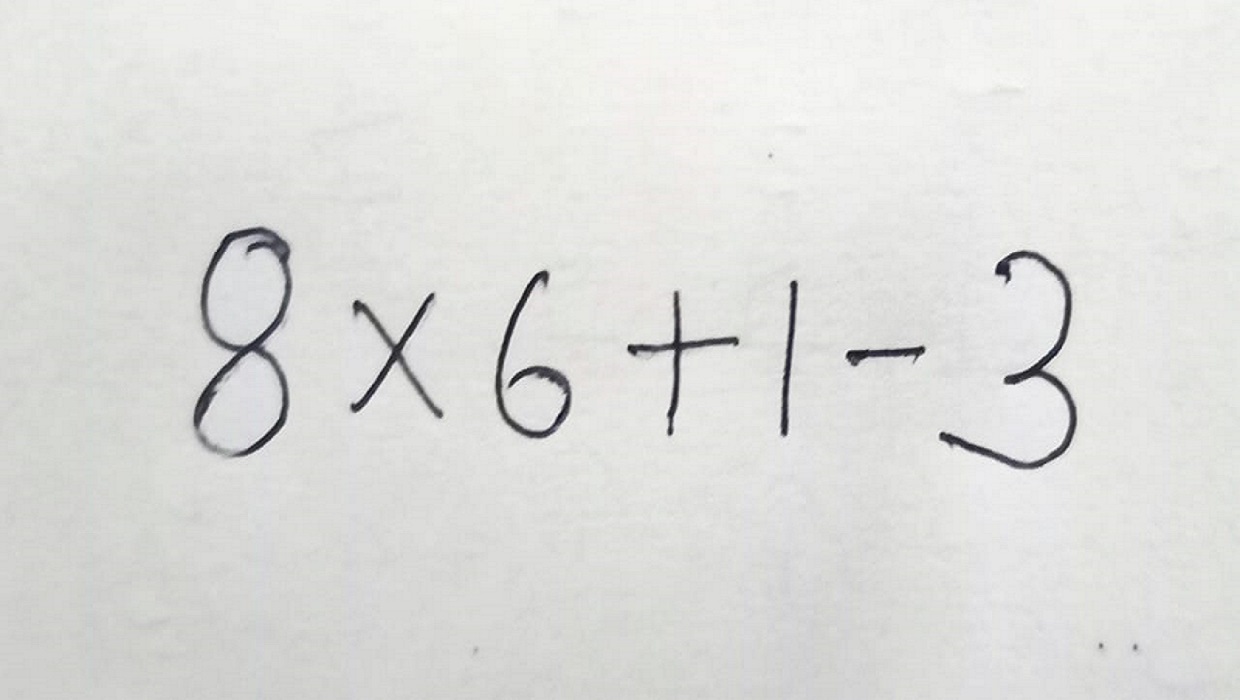 8 × 6 + 1 - 3